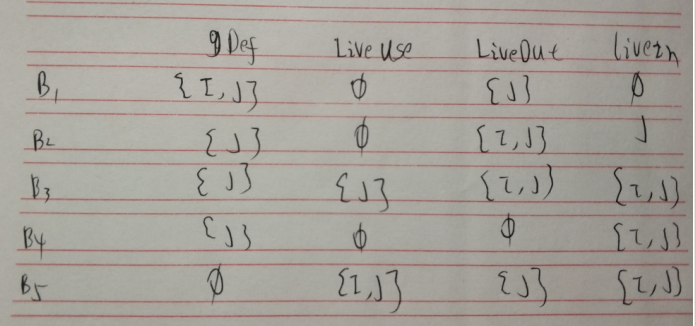 Def LiveUse LiveOut LiveIn
B1 {I,J} ϕ {J} ϕ
B2 {J} ϕ {I,J} J
B3 {J} {J} {I,J) {I,J}
B4 {J} ϕ ϕ {I,J}
B5 ϕ {I,J} {J} {I,J}